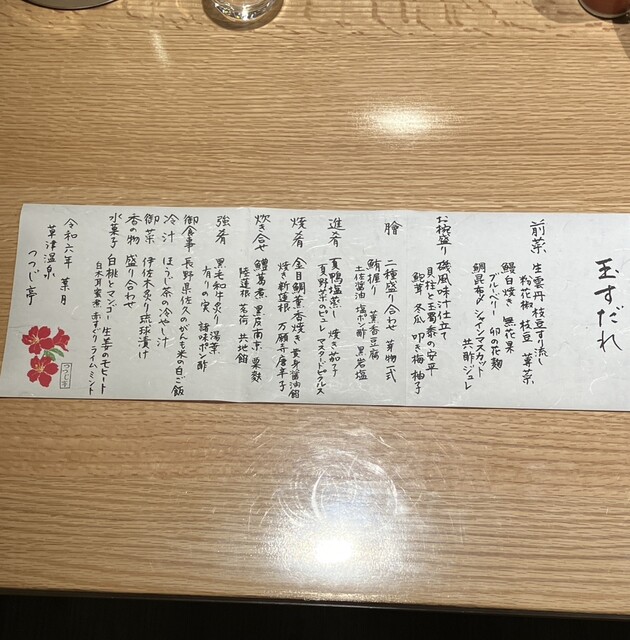 玉すだれ
前菜 生雲丹 枝豆すり流し
粉花椒 枝豆 蓴菜
鰻白焼き 無花果
ブルーベリー 卯の花麹
鯛昆布〆 シャインマスカット
共酢ジュレ
お椀盛り 磯風味汁仕立て
貝柱と玉蜀黍の安平
鮑茸 冬瓜 叩き梅 柚子
膾 二種盛り合わせ 芽物一式
鮪握り 薫香豆腐
土佐醤油 塩ポン酢 黒岩塩
進肴 夏鴨塩蒸し 焼き茄子
夏野菜のピュレ マスタードピクルス
焼肴 金目鯛薫香焼き 黄身醤油餡
焼き新蓮根 万願寺唐辛子
炊き合せ 鱧葛煮 黒皮南京 粟麩
隠蓮根 茗荷 共地餡
強肴 黒毛和牛炙り 湯葉
有りの実 諸味ポン酢
御食事 長野県佐久のがんも米の白ご飯
冷汁 ほうじ茶の冷やし汁
御菜 伊佐木炙り琉球漬け
香の物 盛り合わせ
水菓子 白桃とマンゴー 生姜のモヒート
白木耳蜜煮 赤すぐり ライム ミント
令和六年 葉月
草津温泉
つつじ亭
つつじ亭